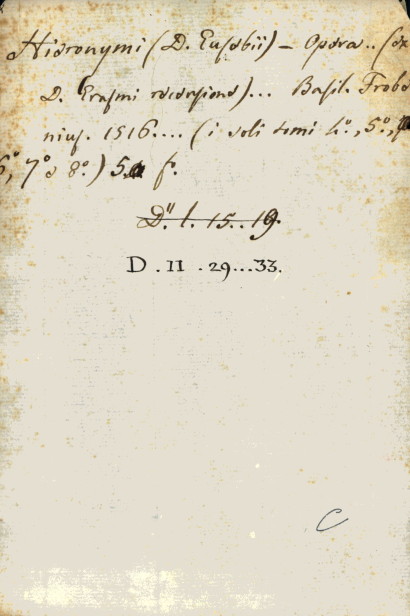 Hieronymi (D. Eusebii) – Opera.. (ex
D. Erasmi recensione)... Basil. Frobe
nius. 1516.... (i soli tomi 4.°, 5.°,
6°, 7° e 8.°) 5. f.
D.'' l. 15..19.
D . II . 29...33.
C